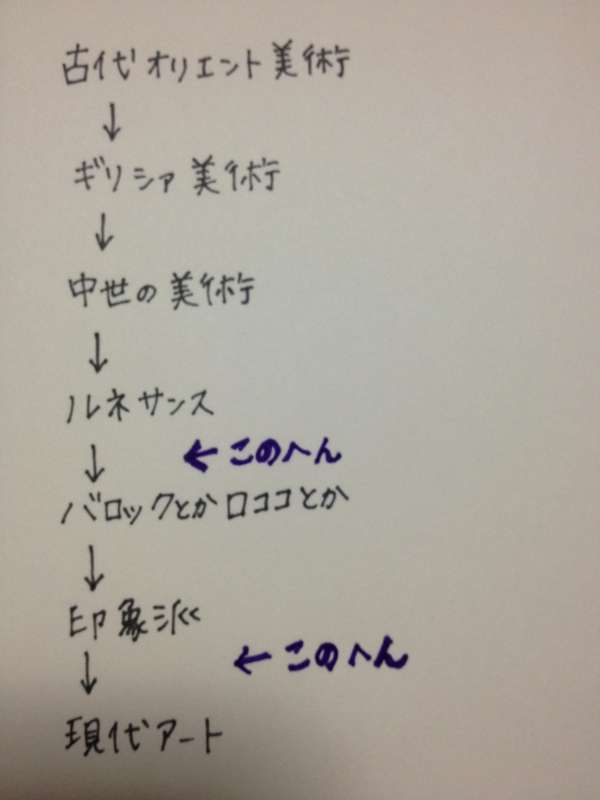 古代オリエント美術
↓
ギリシァ美術
↓
中世の美術
↓
ルネサンス
↓ ←このへん
バロックとかロココとか
↓
印象派
↓ ←このへん
現代アート